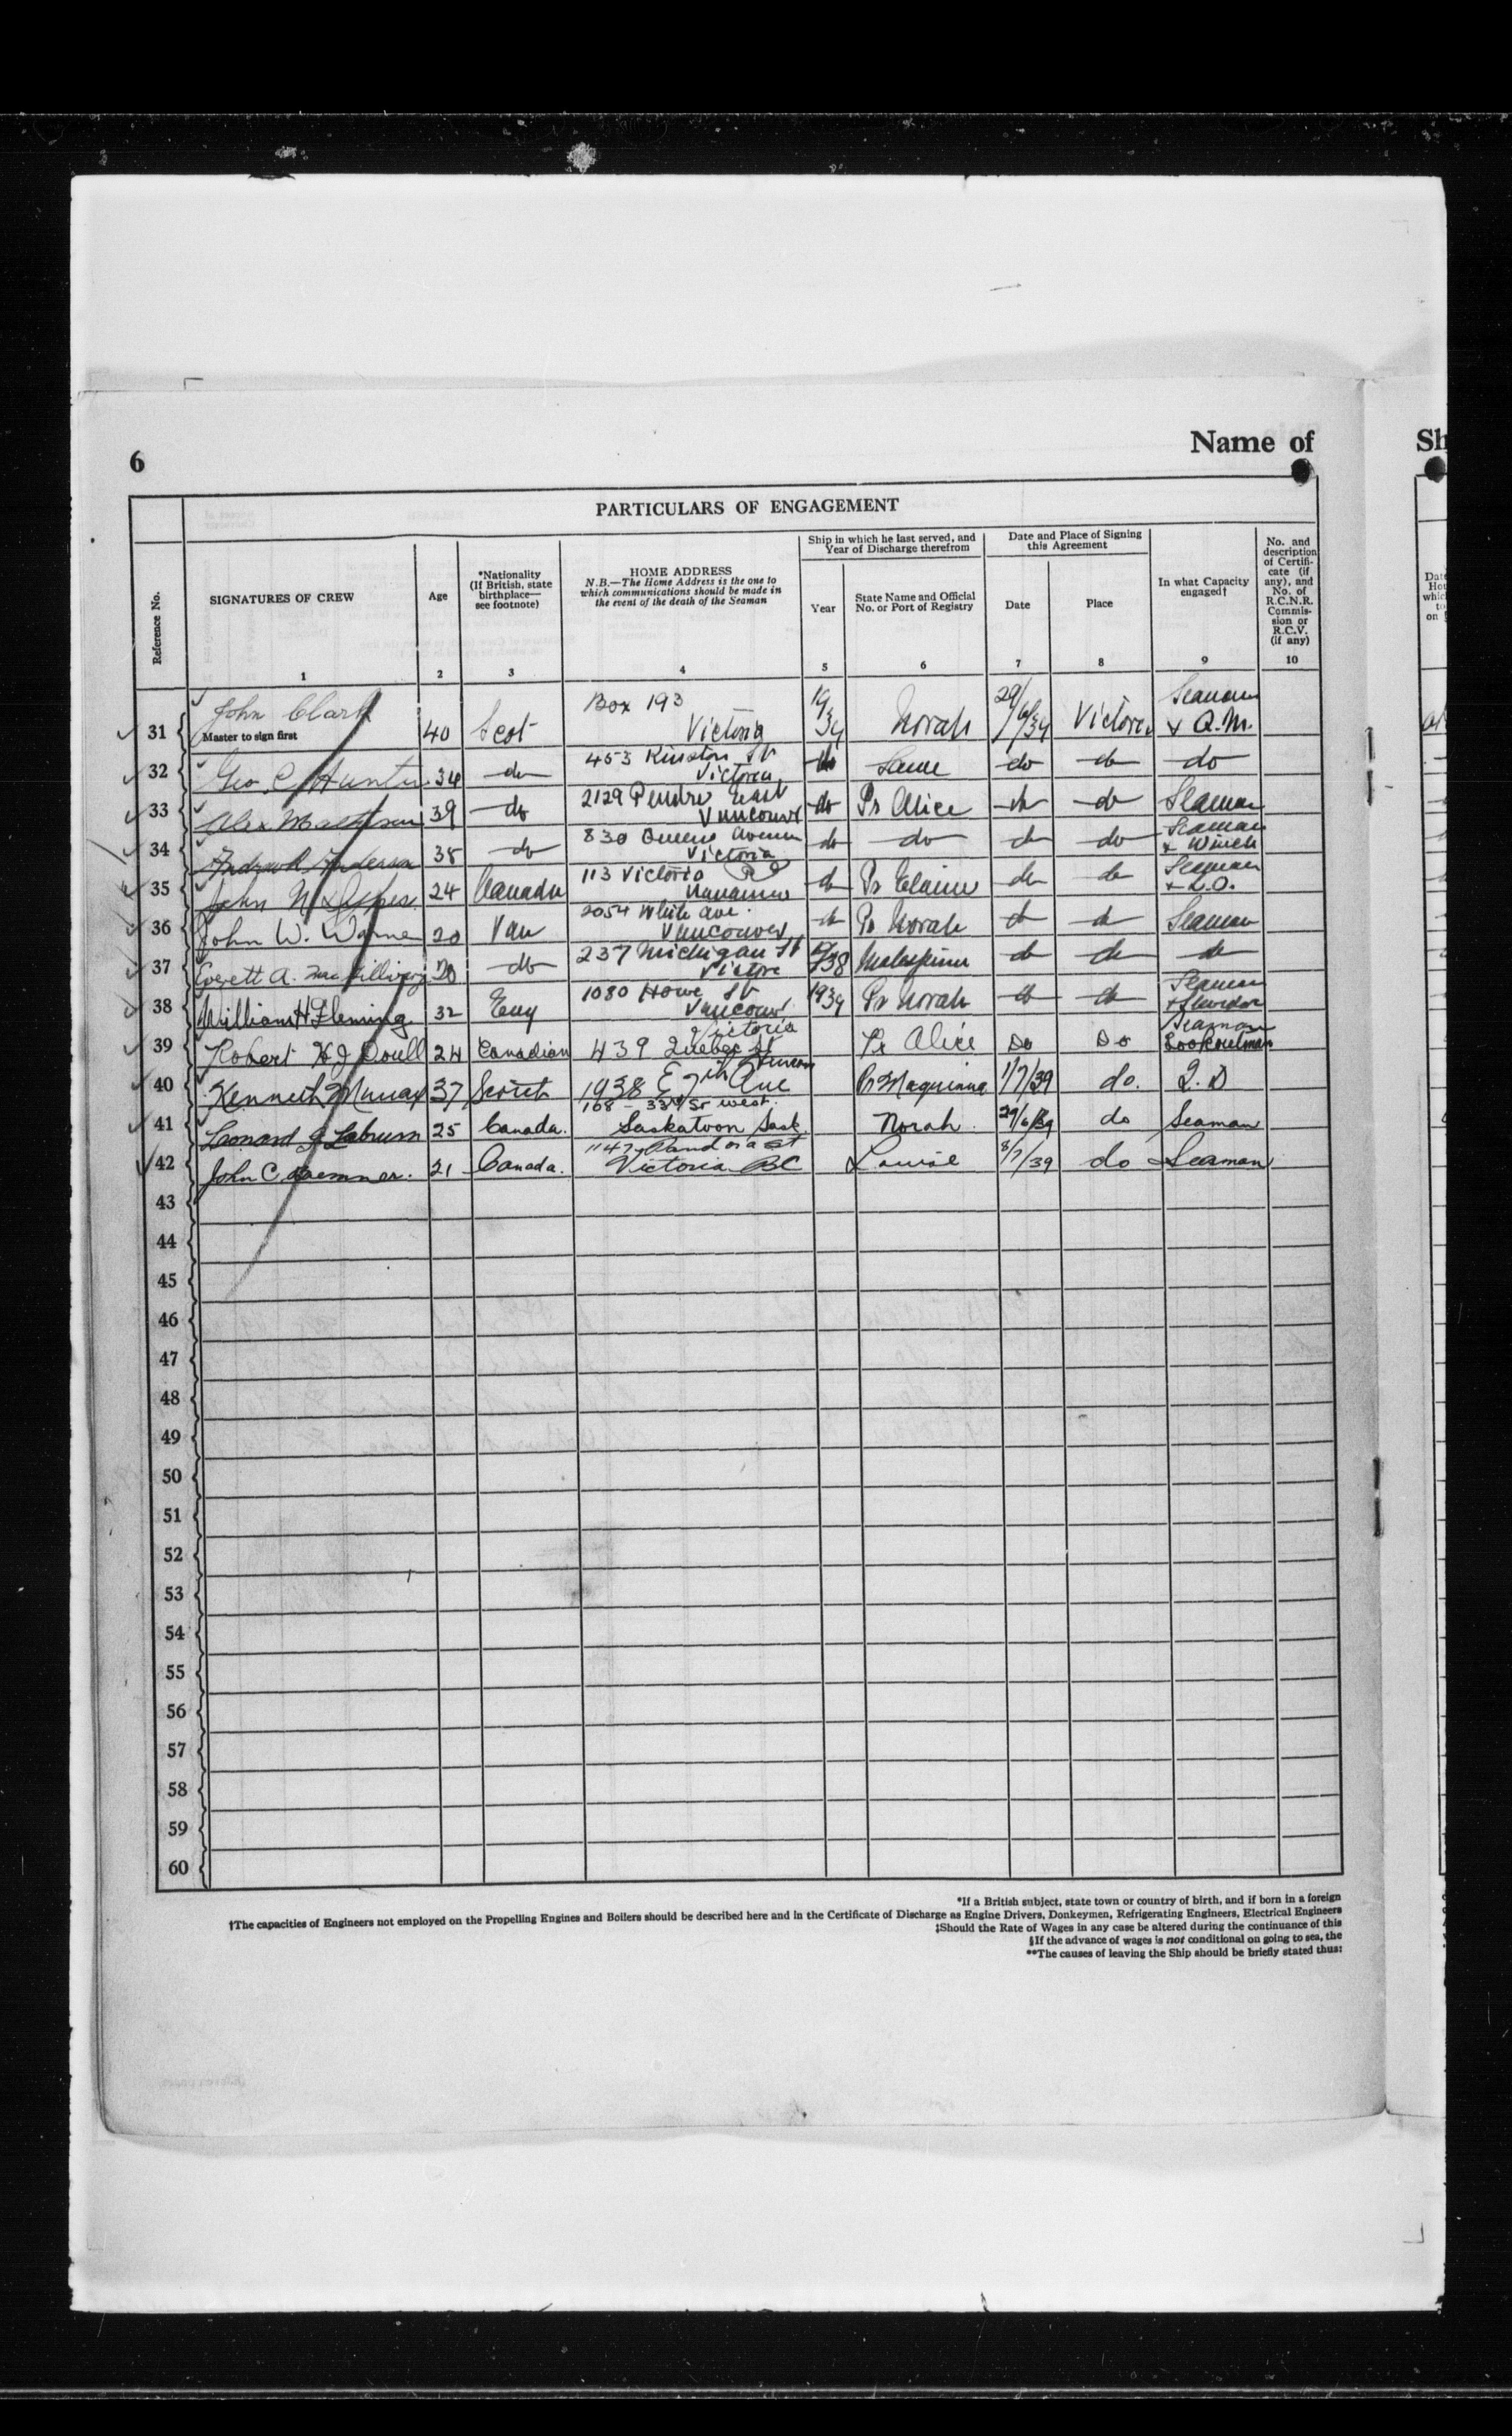 6
Name of
Sh
PARTICULARS OF ENGAGEMENT
Reference No.
SIGNATURES OF CREW
1
Age
2
*Nationality
(If British, state
birthplace—
see footnote)
3
HOME ADDRESS
N.B.—The Home Address is the one to
which communications should be made in
the event of the death of the Seaman
4
Ship in which he last served, and
Year of Discharge therefrom
Year
5
State Name and Official
No. or Port of Registry
6
Date and Place of Signing
this Agreement
Date
7
Place
8
In what Capacity
engaged†
9
No. and
description
of Certifi-
cate (if
any), and
No. of
R.C.N.R.
Commis-
sion or
R.C.V.
(if any)
10
31 John Clark 40 Scot Box 193 Victoria Norah Victoria Seaman & Q.M.
Master to sign first
32 Geo. C. Hunter 34 do 453 Victoria do Same do do do
33 Alex 39 do 2129 Pender East Vancouver do Pr Alice do do Seaman
34 Andrew Anderson 38 do 830 Queens Avenue Victoria do do do do Seaman & Winch
35 John N 24 Canada 113 Victoria Rd Nanaimo do Pr Elaine do do Seaman & L.O.
36 John W. Warne 20 Van 2054 White Ave. Vancouver do Pr Norah do do Seaman
37 Everett A. MacGillivray 20 do 237 Michigan St Victoria Malaspina do do do
38 William H Fleming 32 Eng 1080 Howe St Vancouver 1939 Pr Norah do do Seaman
39 Robert H J Doull 24 Canadian 439 Quebec St Victoria Pr Alice Do Do Seaman Lookoutman
40 Kenneth Murray 37 1938 E 7th Ave Pr Maquinna 1/7/39 do.
41 Leonard J Labrum 25 Canada. 168 - 33rd St west. Saskatoon Sask. Norah 29/6/39 do Seaman
42 John C. 21 Canada. 1147 Pandora St Victoria BC Louise 8/7/39 do Seaman
43
44
45
46
47
48
49
50
51
52
53
54
55
56
57
58
59
60
*If a British subject, state town or country of birth, and if born in a foreign
†The capacities of Engineers not employed on the Propelling Engines and Boilers should be described here and in the Certificate of Discharge as Engine Drivers, Donkeymen, Refrigerating Engineers, Electrical Engineers
‡Should the Rate of Wages in any case be altered during the continuance of this
§If the advance of wages is not conditional on going to sea, the
**The causes of leaving the Ship should be briefly stated thus: